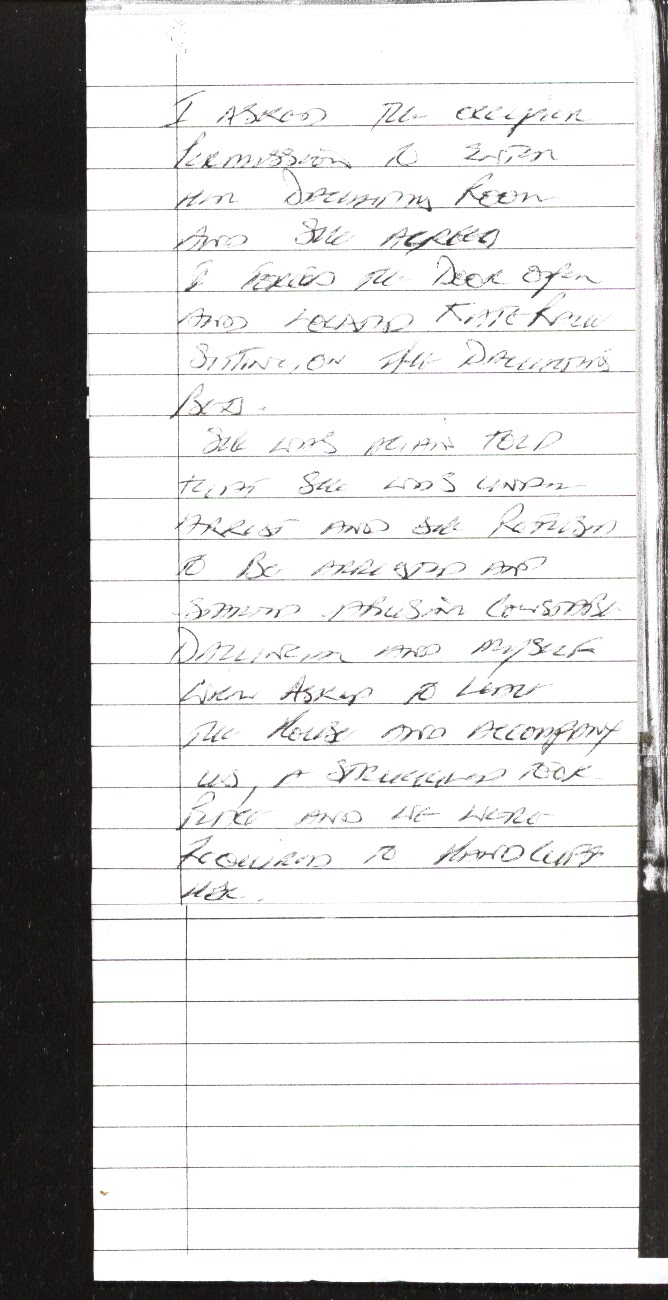 I ASKED THE OCCUPIER
PERMISSION TO ENTER
HER DAUGHTERS ROOM
AND SHE AGREED
I FORCED THE DOOR OPEN
AND LOCATED KATE
SITTING ON THE DAUGHTERS
BED.
SHE WAS AGAIN TOLD
THAT SHE WAS UNDER
ARREST AND SHE REFUSED
TO BE ARRESTED AND
STARTED ABUSING CONSTABLE
AND MYSELF
WHEN ASKED TO LEAVE
THE HOUSE AND ACCOMPANY
US, A STRUGGLED TOOK
PLACE AND WE WERE
REQUIRED TO HANDCUFF
HER.